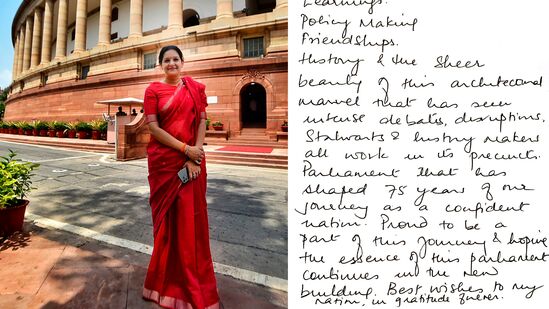 Learnings.
Policy Making
Friendships.
History & the sheer
beauty of this architectural
marvel that has seen
intense debates, disruptions.
Stalwarts & history makers
all work in its precincts.
Parliament that has
shaped 75 years of our
journey as a confident
nation. Proud to be a
part of this journey & hoping
the essence of this parliament
continues in the new
building. Best wishes to my
nation, in gratitude forever.